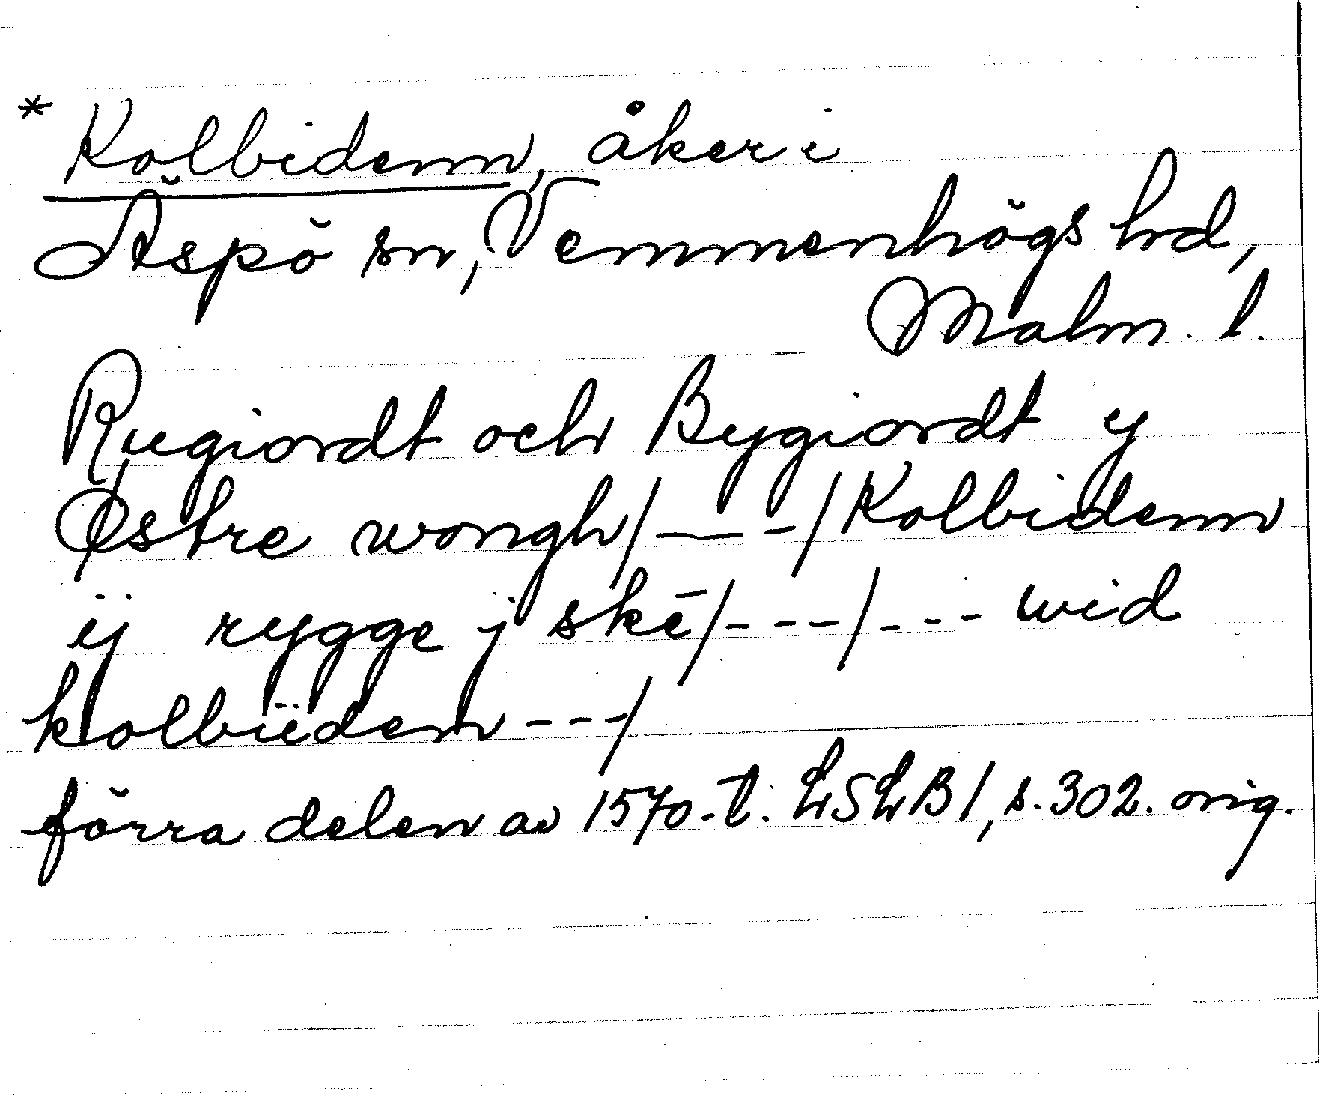 * Kolbidenn, åker i
Äspö sn, Vemmenhögs hd,
Malm. l.
Rugiordt och Bygiordt y
Østre wongh/— -/Kolbidenn
ij rygge j skē/- - -/- - - wid
kolbiiden - - -/
förra delen av 1570-t. LSLB 1, s. 302. orig.